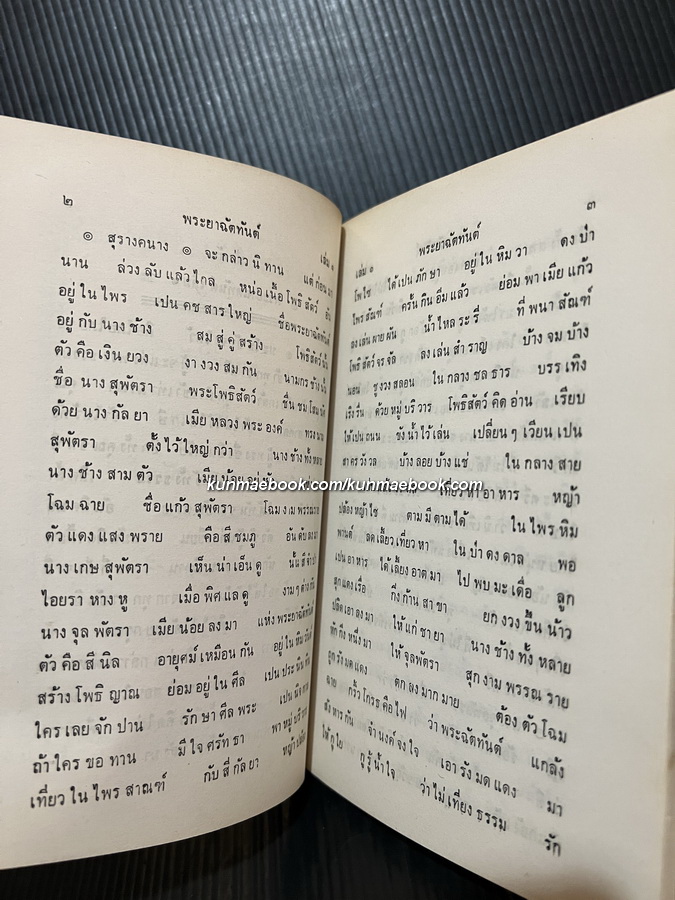 ๒
พระยาฉัตทันต์
เล่ม ๑
๏ สุรางคนาง ๏ จะ กล่าว นิ ทาน แต่ ก่อน
นาน ล่วง ลับ แล้ว ไกล หน่อ เนื้อ โพธิ สัตว์
อยู่ ใน ไพร เปน คช สาร ใหญ่ ชื่อพระยาฉัตทันต์
อยู่ กับ นาง ช้าง สม สู่ คู่ สร้าง โพธิสัตว์
ตัว คือ เงิน ยวง งา งวง สม กัน นามกร ช้าง
ชื่อ นาง สุพัตรา พระโพธิสัตว์ ชื่น ชม โสม
ด้วย นาง กัล ยา เมีย หลวง พระ องค์ ทรง
สุพัตรา ตั้ง ไว้ ใหญ่ กว่า นาง ช้าง ทั้ง
นาง ช้าง สาม ตัว เมีย น้อย อยู่
โฉม ฉาย ชื่อ แก้ว สุพัตรา โฉม งาม
ตัว แดง แสง พราย คือ สี ชมภู อัน
นาง เกษ สุพัตรา เห็น น่า เอ็น ดู
ไอยรา หาง หู เมื่อ พิศ แล ดู งาม ๆ ต่าง
นาง จุล พัตรา เมีย น้อย ลง มา แห่ง พระยาฉัตทันต์
ตัว คือ สี นิล อายุศม์ เหมือน กัน อยู่ ใน
สร้าง โพธิ ญาณ ย่อม อยู่ ใน ศีล เปน ประ
ใคร เลย จัก ปาน รัก ษา ศีล พระ เปน
ถ้า ใคร ขอ ทาน มี ใจ ศรัท ธา พา หมู่
เที่ยว ใน ไพร สาณฑ์ กับ สี่ กัล ยา
๓
เล่ม ๑
พระยาฉัตทันต์
ได้ เปน ภัก ษา อยู่ ใน หิม วา ดง ป่า
ไพร สัณฑ์ ครั้น กิน อิ่ม แล้ว ย่อม พา เมีย แก้ว
ลง เล่น ผาย ผัน น้ำ ไหล ระ รี่ ที่ พนา สัณฑ์
โพธิสัตว์ จร จัล ลง เล่น สำ ราญ บ้าง จม บ้าง
นอน ชู งวง สลอน ใน กลาง ชล ธาร บรร เทิง
เริง รื่น ด้วย หมู่ บริ วาร โพธิสัตว์ คิด อ่าน เรียบ
ให้ เปน ถนน ขัง น้ำ ไว้ เล่น เปลี่ยน ๆ เวียน เปน
สา คร วัง วล บ้าง ลอย บ้าง แช่ ใน กลาง สาย
เที่ยว หา อา หาร หญ้า
ปล้อง หญ้า ไซ ตาม มี ตาม ได้ ใน ไพร หิม
พานต์ ลด เลี้ยว เที่ยว หา ใน ป่า ดง ดาล พอ
เปน อา หาร ได้ เลี้ยง อาต มา ไป พบ มะ เดื่อ ลูก
สุก แดง เรื่อ กิ่ง ก้าน สา ขา ยก งวง ขึ้น น้าว
ปลิด เอา ลง มา ให้ แก่ ชา ยา นาง ช้าง ทั้ง หลาย
หัก กิ่ง หนึ่ง มา ให้ จุลพัตรา สุก งาม พรรณ ราย
ถูก รัง มด แดง ตก ลง มาก มาย ต้อง ตัว โฉม
ฉาย กริ้ว โกรธ คือ ไฟ ว่า พระฉัตทันต์ แกล้ง
สัง หาร กัน จำ นงค์ จง ใจ เอา รัง มด แดง มา
ให้ กู ไย กู รู้ น้ำ ใจ ว่า ไม่ เที่ยง ธรรม รัก
kunmaebook.com/kuhmaebook.com